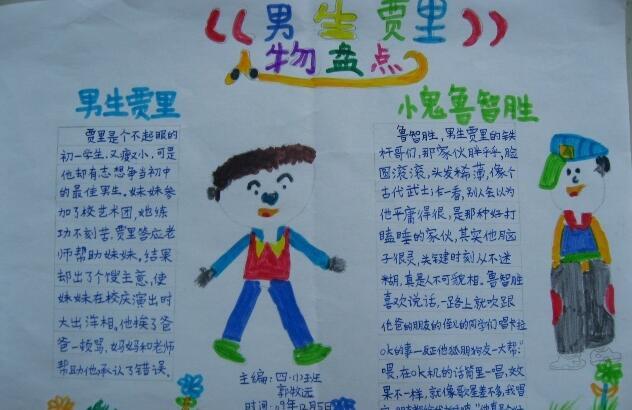 《男生贾里》
人物盘点
男生贾里
贾里是个不起眼的
初一学生.又瘦又小,可是
他却有志想争当初中
的最佳男生.妹妹参
加了校艺术团,她练
功不刻苦.贾里答应老
师帮助妹妹,结果
却出了个馊主意,使
妹妹在校庆演出时
大出洋相.他挨了爸
爸一顿骂,妈妈和老师
帮助他,承认了错误.
小鬼鲁智胜
鲁智胜,男生贾里的铁
杆哥们,那家伙胖乎乎,脸
圆滚滚,头发稀薄,像个
古代武士.乍一看,别人会以为
他平庸得很,是那种好打
瞌睡的家伙,其实他脑
子很灵,关键时刻从不迷
糊,真是人不可貌相.鲁智胜
喜欢说话,一路上就吹跟
他爸的朋友的侄儿的同学们唱卡拉
ok的事一反正他狐朋狗友一大帮:"
嘿,在ok机的话筒里一唱,效
果不一样,就像歌星差不多,我唱
主编:四(1)班
郭牧远
时间:09年12月5日